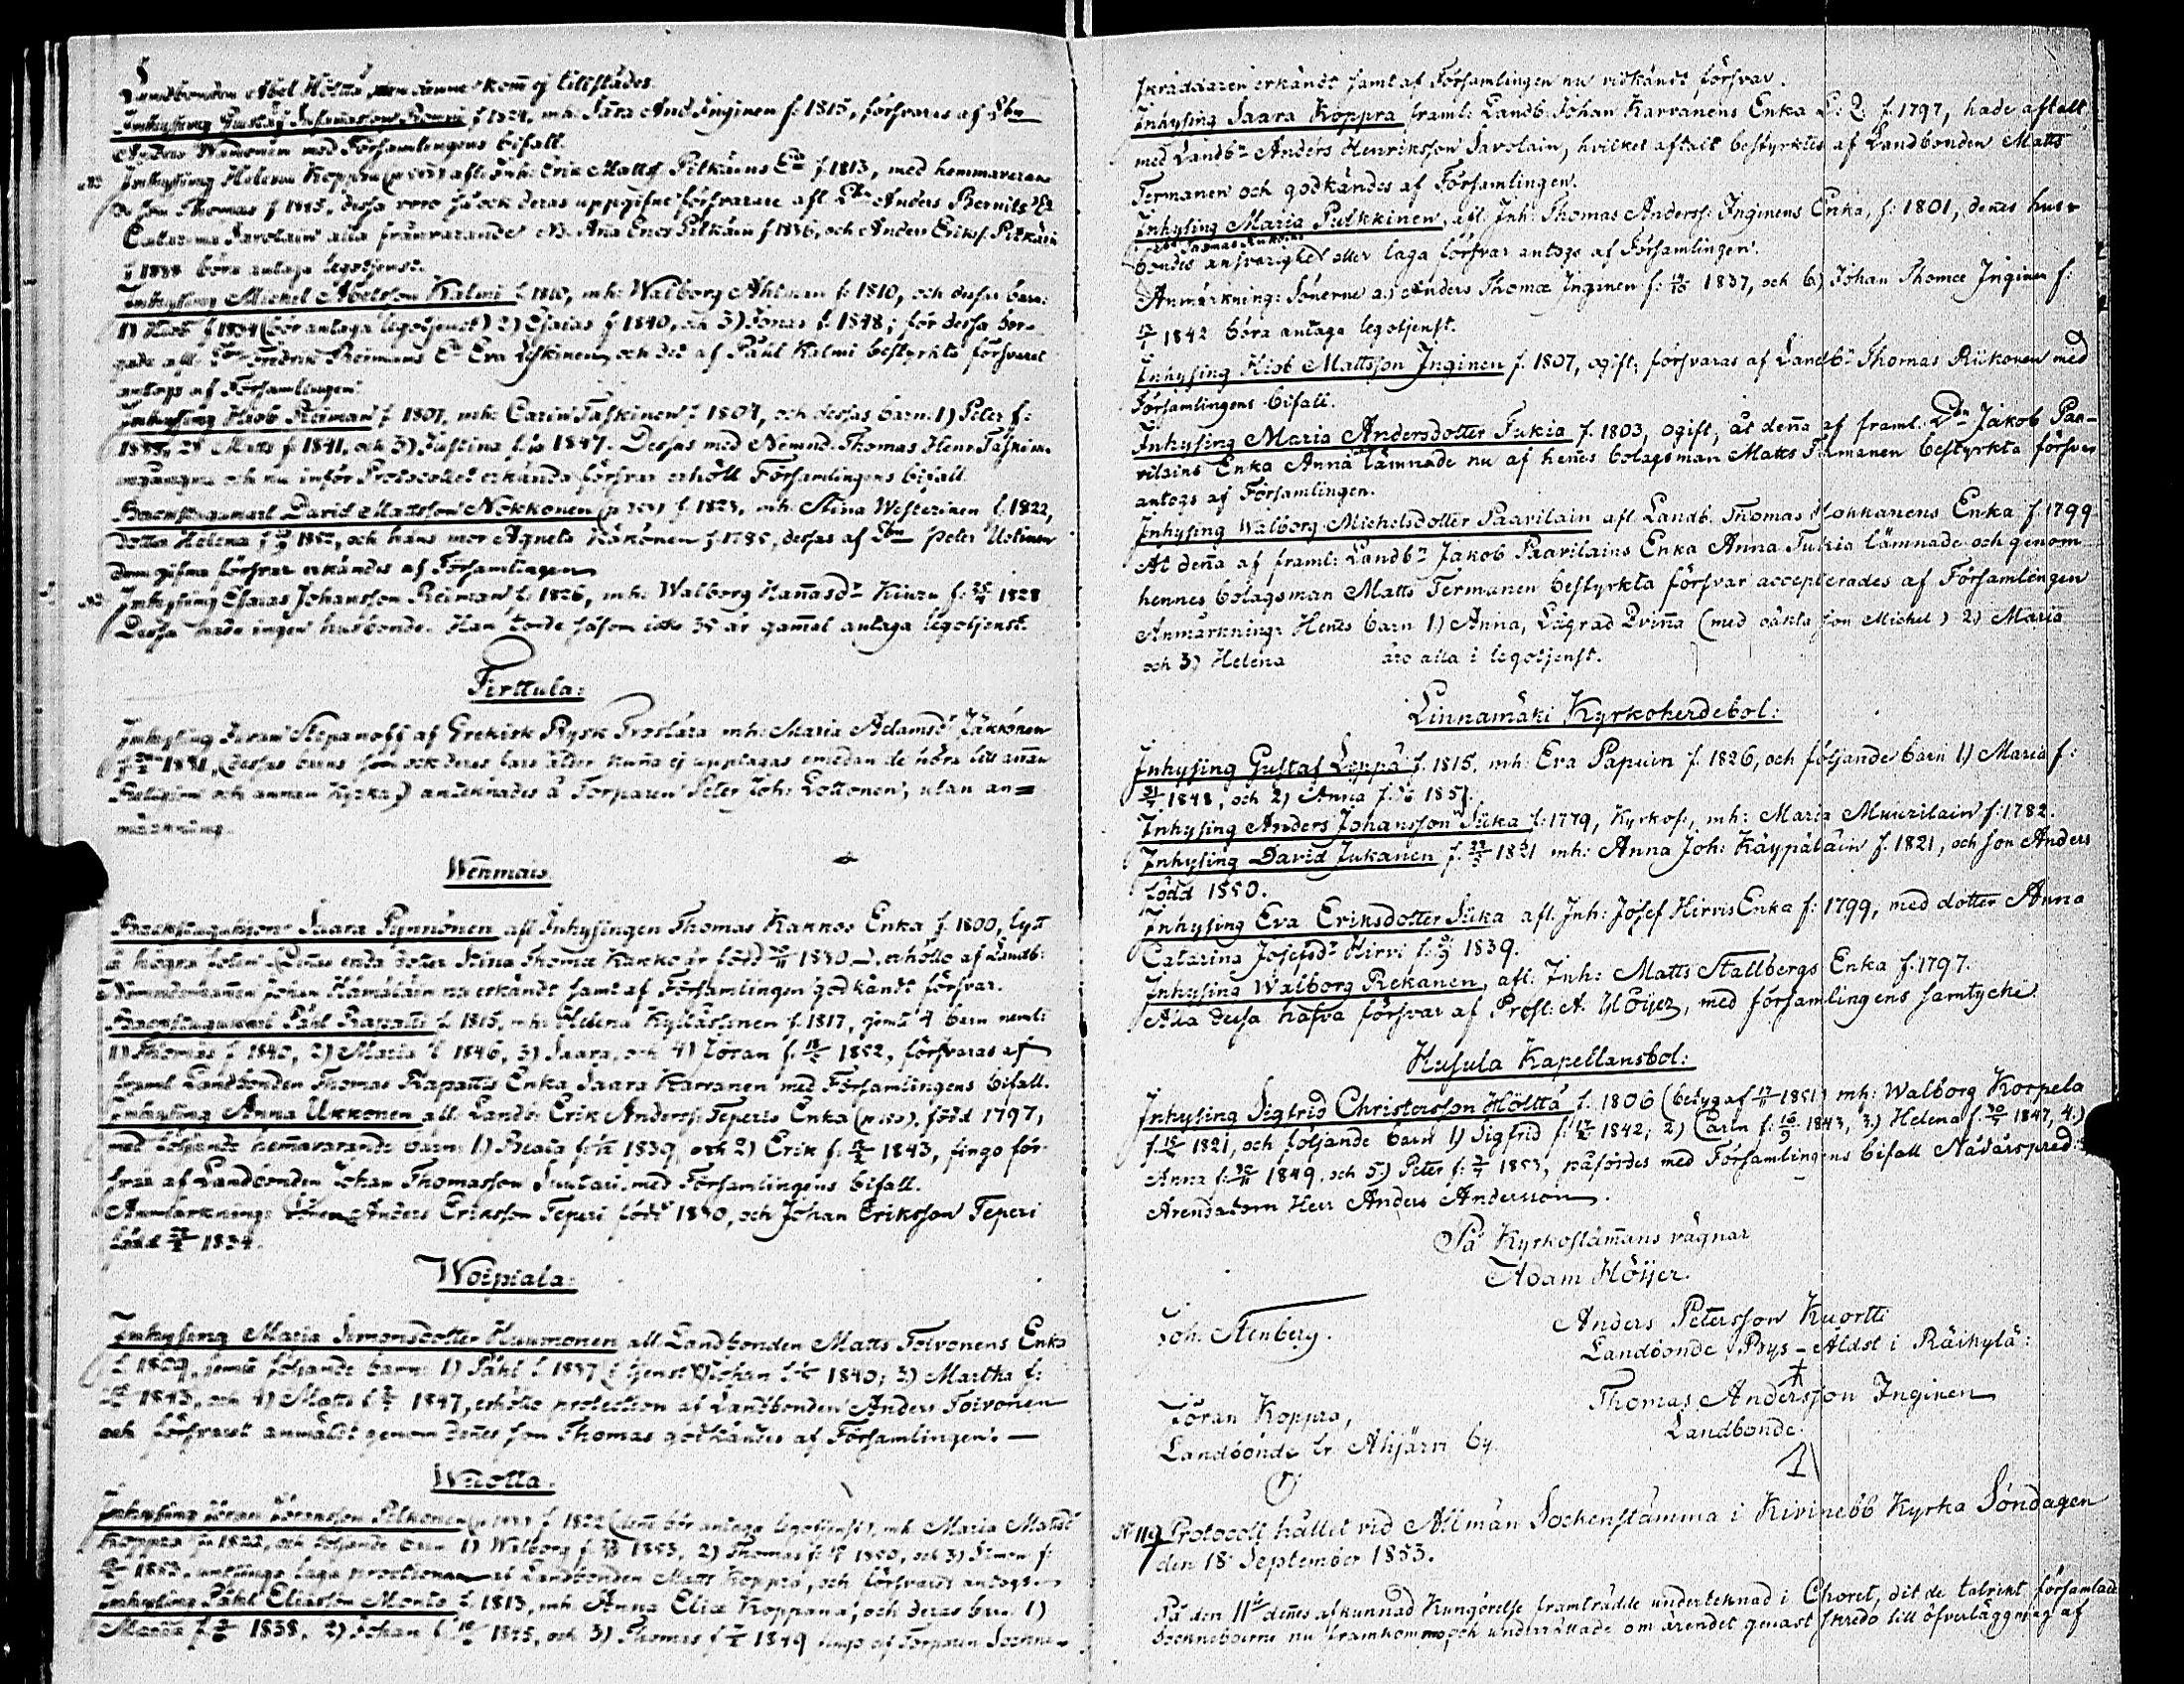 Landbonden Abel Hölttä, men denne kom̄ ej tillstädes.
Inhysing Gustaf f 1824, mh. Sara And. Inginen f. 1815, försvaras af Lbn
Anders med Församlingens bifall.
Inhysing Helena Koppra afl. Inh: Erik Matts: Pitkäins Ea f. 1813, med hemmavarande
son Thomas f 1845, dessa voro så ock deras uppgifne försvarare afl. Lbn Anders
Catarina Savolain alla frånvarande. NB. Ana Erics Pitkäin f 1836, och Anders Eriks: Pitkäin
f 1838 böra antaga legotjenst.
Inhysing Michel Abelsson Kalmi f. 1810, mh: Walborg Ahlman f. 1810, och dessas barn:
1) Hiob f 1834 (bör antaga legotjenst) 2) Esaias f 1840, och 3) Jonas f. 1848; för dessa bor-
gade afl. Fredrik Reimans Ea Eva Leskinen, och det af Påhl Kalmi bestyrkta försvaret
antogs af Församlingen.
Inhysing Hiob Reiman f. 1807, mh: Carin Taskinen f. 1807, och dessas barn: 1) Peter f:
2) Matts f. 1841, och 3) Justina f. 1847. Dessas med Nemnd. Thomas Henr. Taskin
ingångna och nu inför Protocollet erkända försvar erhöll Församlingens bifall.
Backstugukarl David Mattsson Nokkonen f. 1823, mh: Stina Westerinen f. 1822,
dotter Helena f 1852, och hans mor Agneta Kokonen f. 1785, dessas af Lbn Peter
dem gifna försvar erkändes af Församlingen
Inhysing Esaias Johansson Reiman f. 1826, mh: Walborg Han̄asdr Kiuru f. 1828
Dessa hade ingen husbonde. Han borde såsom icke 35 år gam̄al antaga legotjenst.
Firttula:
Inhysing Iwan Stepanoff af Grekisk Rysk Troslära mh: Maria Adamsdr Jäkkönen
1831, (dessas barns som ock deras lars ålder kun̄a ej upptagas emedan de höra till an̄an
Religion och annan Kyrka) antecknades å Torparen Peter Joh: Lottonen, utan an=
märkning.
Wēnmais
Backstuguhjon Saara Pynnönen afl Inhysingen Thomas Kakkos Enka f. 1800, lytt
å högra foten (Den̄es enda dotter Stina Thomæ Kakko är född 1830) erhöllo af Landb:
Nemndeman̄en Johan Hämäläin nu erkändt samt af Församlingen godkändt försvar.
Backstugukarl Påhl Rapatti f. 1815, mh: Helena Kyllästinen f. 1817, jemte 4 barn neml:
1) Thomas f 1840, 2) Maria f 1846, 3) Saara, och 4) Jöran f. 1852, försvaras af
framl: Landbonden Thomas Rapattis Enka Saara Karranen med Församlingens bifall.
Inhysing Anna Ukkonen afl. Landb: Erik Anders: Teperis Enka, född 1797,
med följande hem̄avarande barn: 1) Beata f. 1839, och 2) Erik f. 1843, fingo för-
svar af Landbonden Johan Thomasson Suutari, med Församlingens bifall.
Anmärkning: Sönerna Anders Eriksson Teperi född 1830, och Johan Eriksson Teperi
född 1834.
Woipiala:
Inhysing Maria Simonsdotter Kuumonen afl. Landbonden Matts Toivonens Enka
f. 1809, jemte följande barn: 1) Påhl f. 1837 (i tjenst) 2) Johan f. 1840; 3) Martha f:
1843, och 4) Matts f 1847, erhöllo protection af Landbonden Anders Toivonen
och försvaret anmäldt genom den̄es son Thomas godkändes af Församlingen. —
Wuotta:
Inhysing Jöran Jöransson Pelkonen f. 1822 (den̄e bör antaga legotjenst), mh. Maria Matsdr
Koppra f. 1822, och följande barn 1) Walborg f. 1853, 2) Thomas f. 1850, och 3) Simon f:
1853, laga af Landbonden Matts Koppra, och försvaret antogs
Inhysing Påhl Eliasson Monto f. 1813, mh. Anna Eliæ Koppana, och deras barn 1)
Maria f. 1838, 2) Johan f. 1845, och 3) Thomas f 1849 af Torparen Sockne-
skräddaren erkändt samt af Församlingen nu vidkändt försvar.
Inhysing Saara Koppra framl: Landb: Johan Karranens Enka L: Q: f. 1797, hade aftalt
med Landbn Anders Henriksson Savolain, hvilket aftalt bestyrktes af Landbonden Matts
Termanen och godkändes af Församlingen.
Inhysing Maria Pulkkinen, afl. Inh: Thomas Anderss: Inginens Enka, f: 1801, den̄es hus-
bondes ansvarighet eller laga försvar antogs af Församlingen.
Anmärkning: Sönerne a.) Anders Thomæ Inginen f: 1837, och b.) Johan Thomæ Inginen f:
1842 böra antaga legotjenst.
Inhysing Hiob Mattsson Inginen f. 1807, ogift, försvaras af Landbn Thomas Riikonen med
Församlingens bifall.
Inhysing Maria Andersdotter Tukia f. 1803, ogift, åt den̄a af framl: Lbn Jakob Paa-
vilains Enka Anna lämnade nu af hen̄es bolagsman Matts Termanen bestyrkta försvar
antogs af Församlingen.
Inhysing Walborg Michelsdotter Paavilain afl. Landb. Thomas Jokkanens Enka f. 1799
At den̄a af framl: Landbn Jakob Paavilains Enka Anna Tukia lämnade och genom
hennes bolagsman Matts Termanen bestyrkta försvar accepterades af Församlingen
Anmärkning: Hen̄es barn 1) Anna, Lägrad Qvin̄a (med oäkta son Michel) 2) Maria
och 3) Helena äro alla i legotjenst.
Linnamäki Kyrkoherdebol:
Inhysing Gustaf Leppä f. 1815, mh: Eva Papuin f. 1826, och följande barn 1) Maria f:
1848, och 2) Anna f. 1851.
Inhysing Anders Johansson Siika f: 1779, Kyrkof:, mh: Maria Muurilain f: 1782.
Inhysing David Jukanen f. 1821 mh: Anna Joh: Käypäläin f. 1821, och son Anders
född 1850.
Inhysing Eva Eriksdotter Siika afl. Inh: Josef Hirvis Enka f: 1799, med dotter Anna
Catarina Josefsdr Hirvi f: 1839.
Inhysing Walborg Rekanen, afl. Inh: Matts Stallbergs Enka f. 1797.
Alla dessa hafva försvar af Prost: A. Höijer, med församlingens samtycke.
Kusula Kapellansbol:
Inhysing Sigfrid Christersson Hölttä f. 1806 (betyg af 1851) mh: Walborg Korpela
f. 1821, och följande barn 1) Sigfrid f: 1842; 2) Carin f: 16/9 1843, 3.) Helena f. 1847, 4.)
Anna f: 1849, och 5.) Peter f: 1853, påfördes med Församlingens bifall Nådårspred:s
Arendatorn Herr Anders Andersson.
På Kyrkostäm̄ans vägnar
Adam Höijer.
Joh: Stenberg.
Anders Petersson Kuortti
Landbonde, Bys-Äldst i Räikylä:
Thomas Andersson Inginen
Landbonde.
Jöran Koppra,
Landbonde fr. Ahjärvi by.
No 119 Protocoll hållet vid Allmän Sockenstämma i Kivinebb Kyrka Söndagen
den 18 September 1853.
På den 11te den̄es afkunnad Kungörelse framträdde undertecknad i Choret, dit de talrikt församlade
Sockneboerne nu framkommo, och underrättade om ärendet genast skredo till öfverläggning af